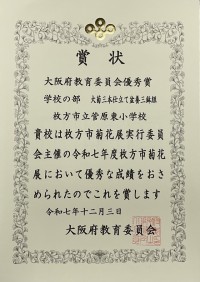 賞状
大阪府教育委員会優秀賞
学校の部 大菊三本仕立て盆養三鉢組
枚方市立菅原東小学校
貴校は枚方市菊花展実行委員
会主催の令和七年度枚方市菊花
展において優秀な成績をおさ
められたのでこれを賞します
令和七年十二月三日
大阪府教育委員会